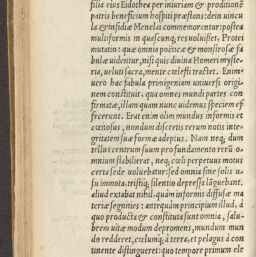 filia eius Eidothea per iniuriam & proditionē
patris beneficium hospiti præstans: dein uincu
la & insidiæ Menelai commemorantur: postea
multiformis in quascunq; res uoluisset, Protei
mutatio: quæ omnia poëticæ & monstrosæ fa
bulæ uidentur, nisi quis diuina Homeri myste-
ria, ueluti sacra, mente cœlesti tractet. Enim
uero hac fabula primigeniam uniuersi origi
nem constituit, qua omnes mundi partes con
firmatæ, illam quam nunc uidemus speciem ef
fecerunt. Erat enim olim mundus informis et
cœnosus, nondum discretis rerum notis inte-
gritatem suæ formæ adeptus. Nam neq; dum
tellus centrum suum profundamento rerū o-
mnium stabilierat, neq; cœli perpetuus motus
certa sede uoluebatur: sed omnia sine solis u-
su immota: tristiq; silentio depressa lāguebant.
aliud extabat nihil, quàm informis diffusæ ma
teriæ segnities: antequàm principium illud, à
quo producta & constituta sunt omnia, salu-
brem uitæ modum depromens, mundum mun
do redderet, cœlumq; à terra, et pelagus à con
tinente distingueret: quo tempore primum ele